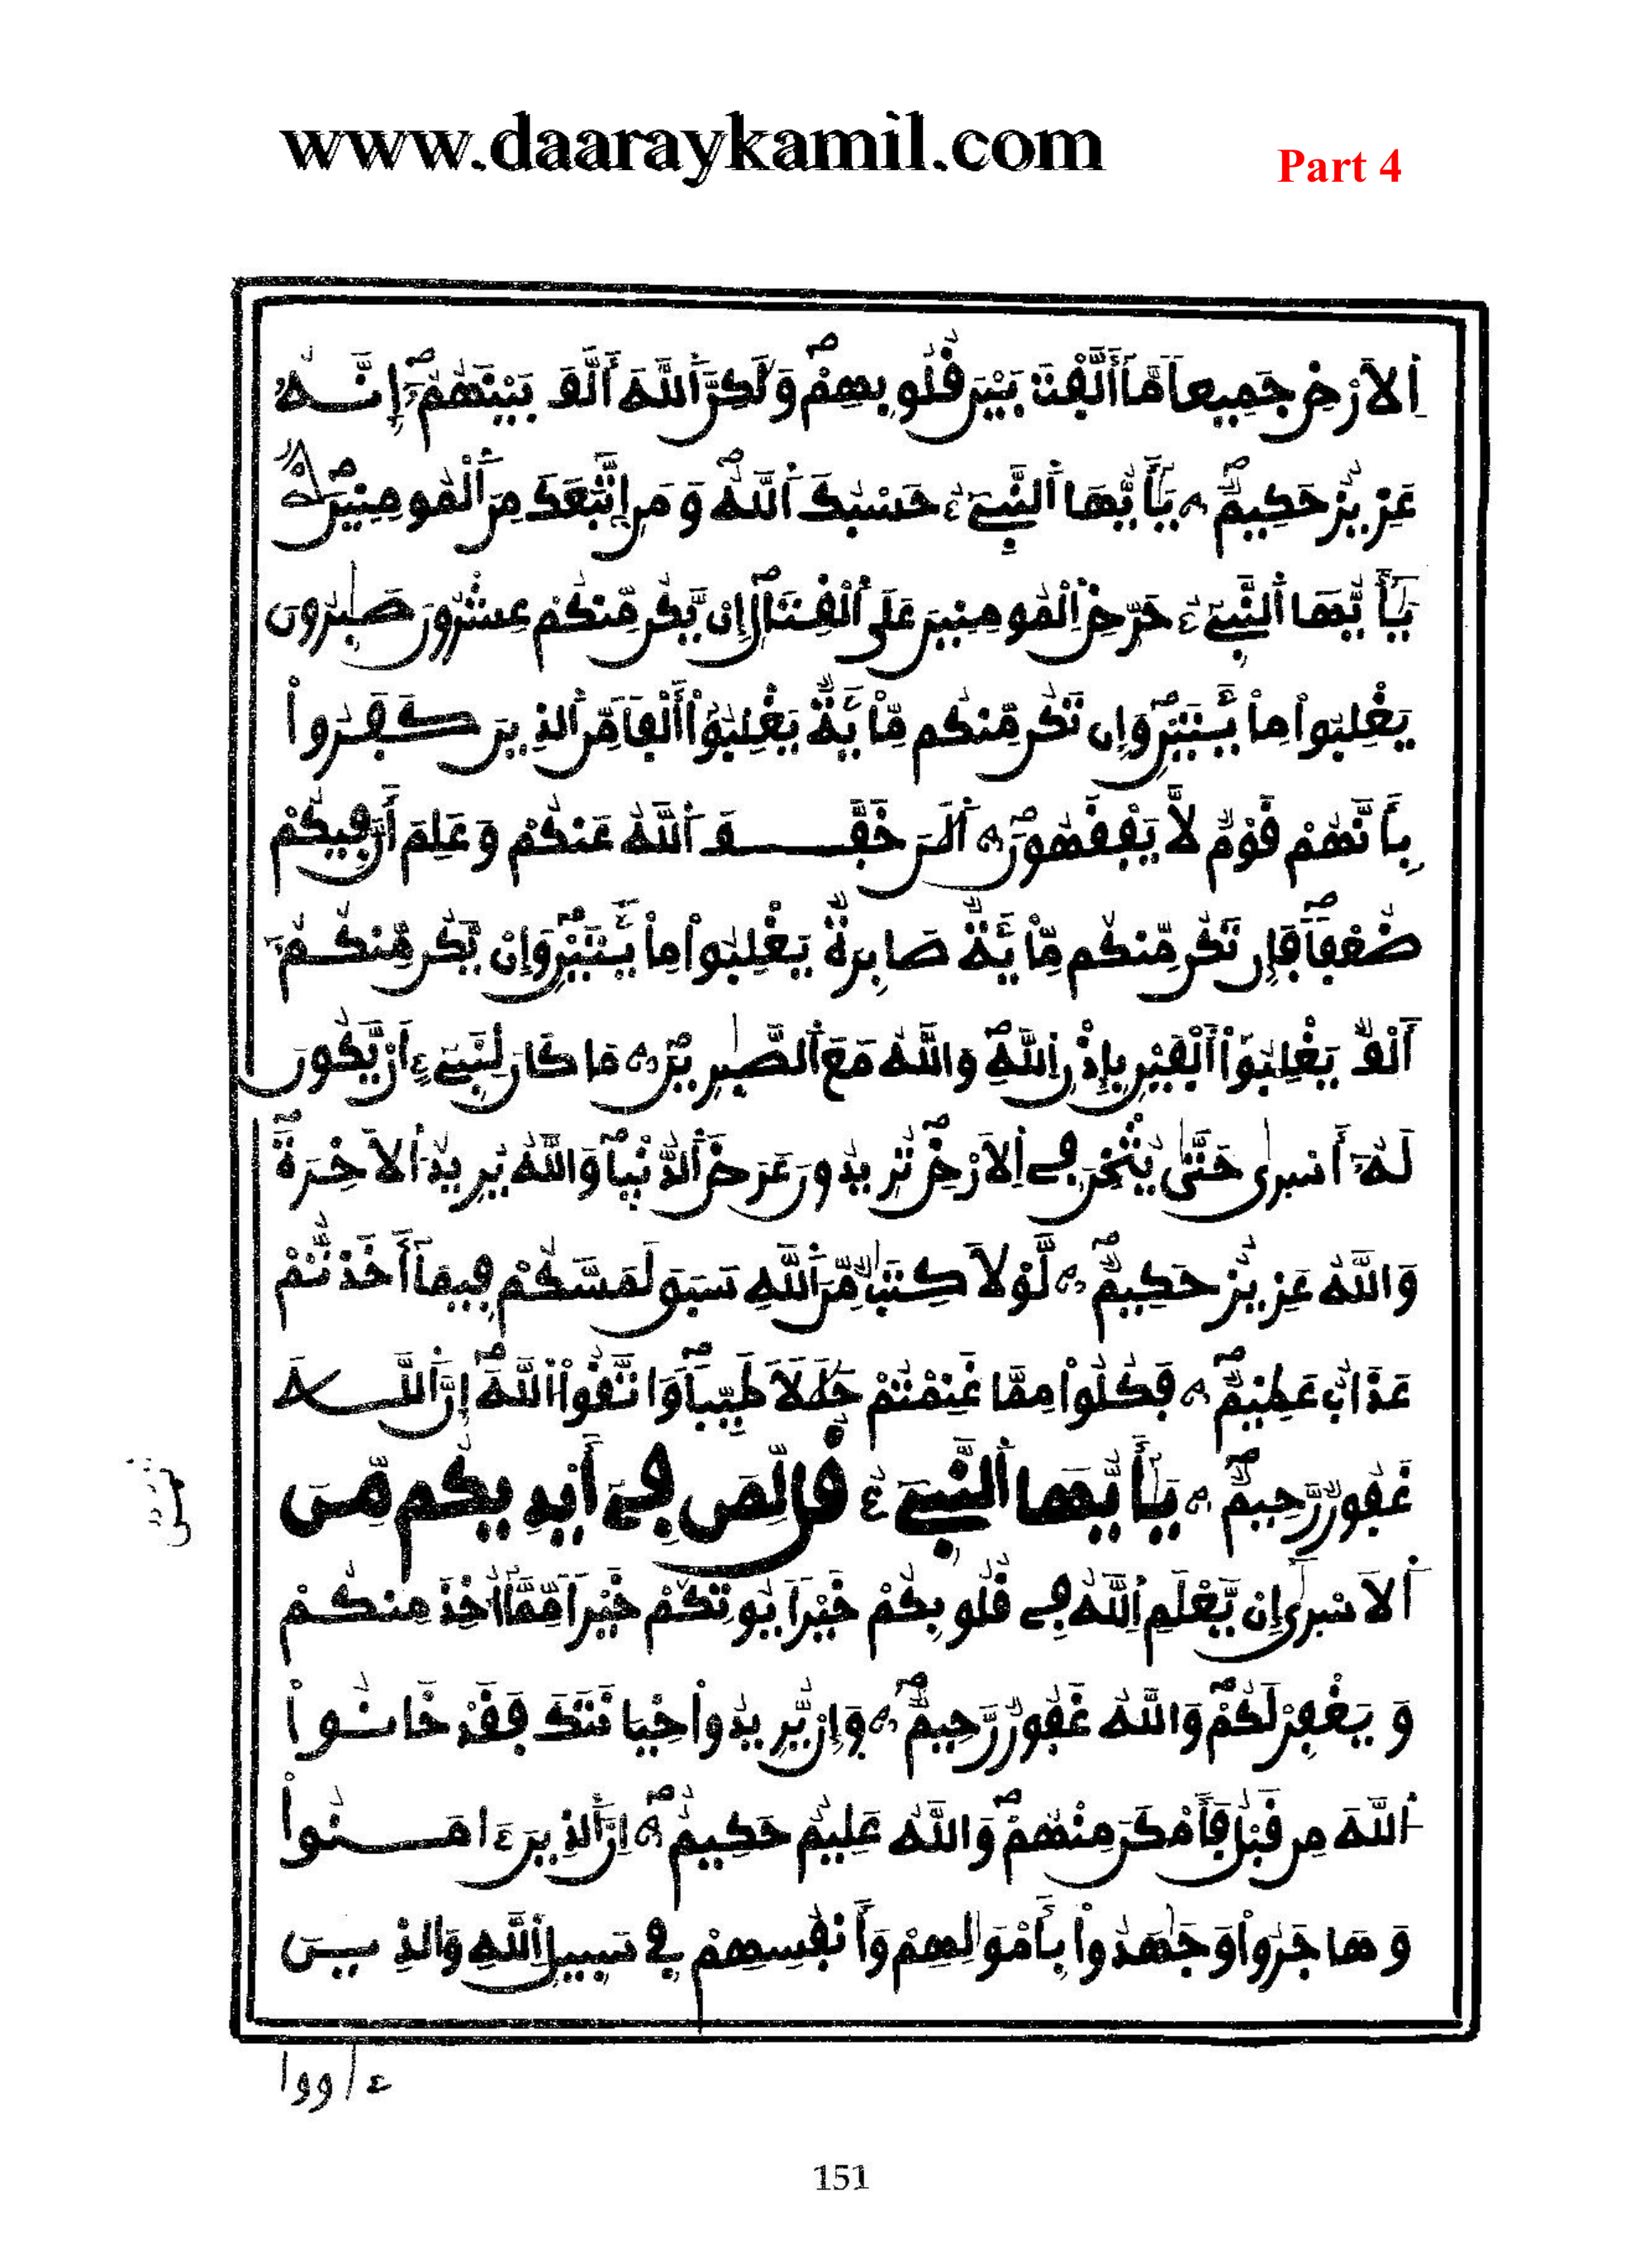 www.daaraykamil.com
Part 4
اِلَارْضِ جَمِيعاً مَّآ أَلَّفْتَ بَيْنَ قُلُوبِهِمْ وَلَٰكِنَّ اَللَّهَ أَلَّفَ بَيْنَهُمُۥٓ إِنَّهُۥ
عَزِيزٌ حَكِيمٌ يَٰٓأَيُّهَا اَلنَّبِيٓءُ حَسْبُكَ اَللَّهُ وَمَنِ اِتَّبَعَكَ مِنَ اَلْمُومِنِينَ
يَٰٓأَيُّهَا اَلنَّبِيٓءُ حَرِّضِ اِلْمُومِنِينَ عَلَى اَلْقِتَالِ إِنْ يَّكُن مِّنكُمْ عِشْرُونَ صَٰبِرُونَ
يَغْلِبُواْ مِاْئَتَيْنِ وَإِن تَكُن مِّنكُم مِّاْئَةٌ يَغْلِبُوٓاْ أَلْفاً مِّنَ اَلذِينَ كَفَرُواْ
بِأَنَّهُمْ قَوْمٌ لَّا يَفْقَهُونَ اَلَٰنَ خَفَّفَ اَللَّهُ عَنكُمْ وَعَلِمَ أَنَّ فِيكُمْ
ضُعْفاً فَإِن تَكُن مِّنكُم مِّاْئَةٌ صَابِرَةٌ يَغْلِبُواْ مِاْئَتَيْنِ وَإِنْ يَّكُن مِّنكُمُۥٓ
أَلْفٌ يَغْلِبُوٓاْ أَلْفَيْنِ بِإِذْنِ اِللَّهِ وَاللَّهُ مَعَ اَلصَّٰبِرِينَ مَا كَانَ لِنَبِيٓءٍ اَنْ يَّكُونَ
لَهُۥٓ أَسْرٰى حَتَّىٰ يُثْخِنَ فِي اِلَارْضِ تُرِيدُونَ عَرَضَ اَلدُّنْيَا وَاللَّهُ يُرِيدُ اُلَاخِرَةَ
وَاللَّهُ عَزِيزٌ حَكِيمٌ لَّوْلَا كِتَٰبٌ مِّنَ اَللَّهِ سَبَقَ لَمَسَّكُمْ فِيمَآ أَخَذتُّمْ
عَذَابٌ عَظِيمٌ فَكُلُواْ مِمَّا غَنِمْتُمْ حَلَٰلًا طَيِّباً وَاتَّقُواْ اُللَّهَ إِنَّ اَللَّهَ
غَفُورٌ رَّحِيمٌ يَٰٓأَيُّهَا اَلنَّبِيٓءُ قُل لِّمَن فِيٓ أَيْدِيكُم مِّنَ
اَلَاسْرٰىٓ إِنْ يَّعْلَمِ اِللَّهُ فِي قُلُوبِكُمْ خَيْراً يُوتِكُمْ خَيْراً مِّمَّآ أُخِذَ مِنكُمْ
وَيَغْفِرْ لَكُمْ وَاللَّهُ غَفُورٌ رَّحِيمٌ وَإِنْ يُّرِيدُواْ خِيَانَتَكَ فَقَدْ خَانُواْ
اُللَّهَ مِن قَبْلُ فَأَمْكَنَ مِنْهُمْ وَاللَّهُ عَلِيمٌ حَكِيمٌ اِنَّ اَلذِينَ ءَامَنُواْ
وَهَاجَرُواْ وَجَٰهَدُواْ بِأَمْوَٰلِهِمْ وَأَنفُسِهِمْ فِي سَبِيلِ اِللَّهِ وَالذِينَ
ثمن
ءاووا
151